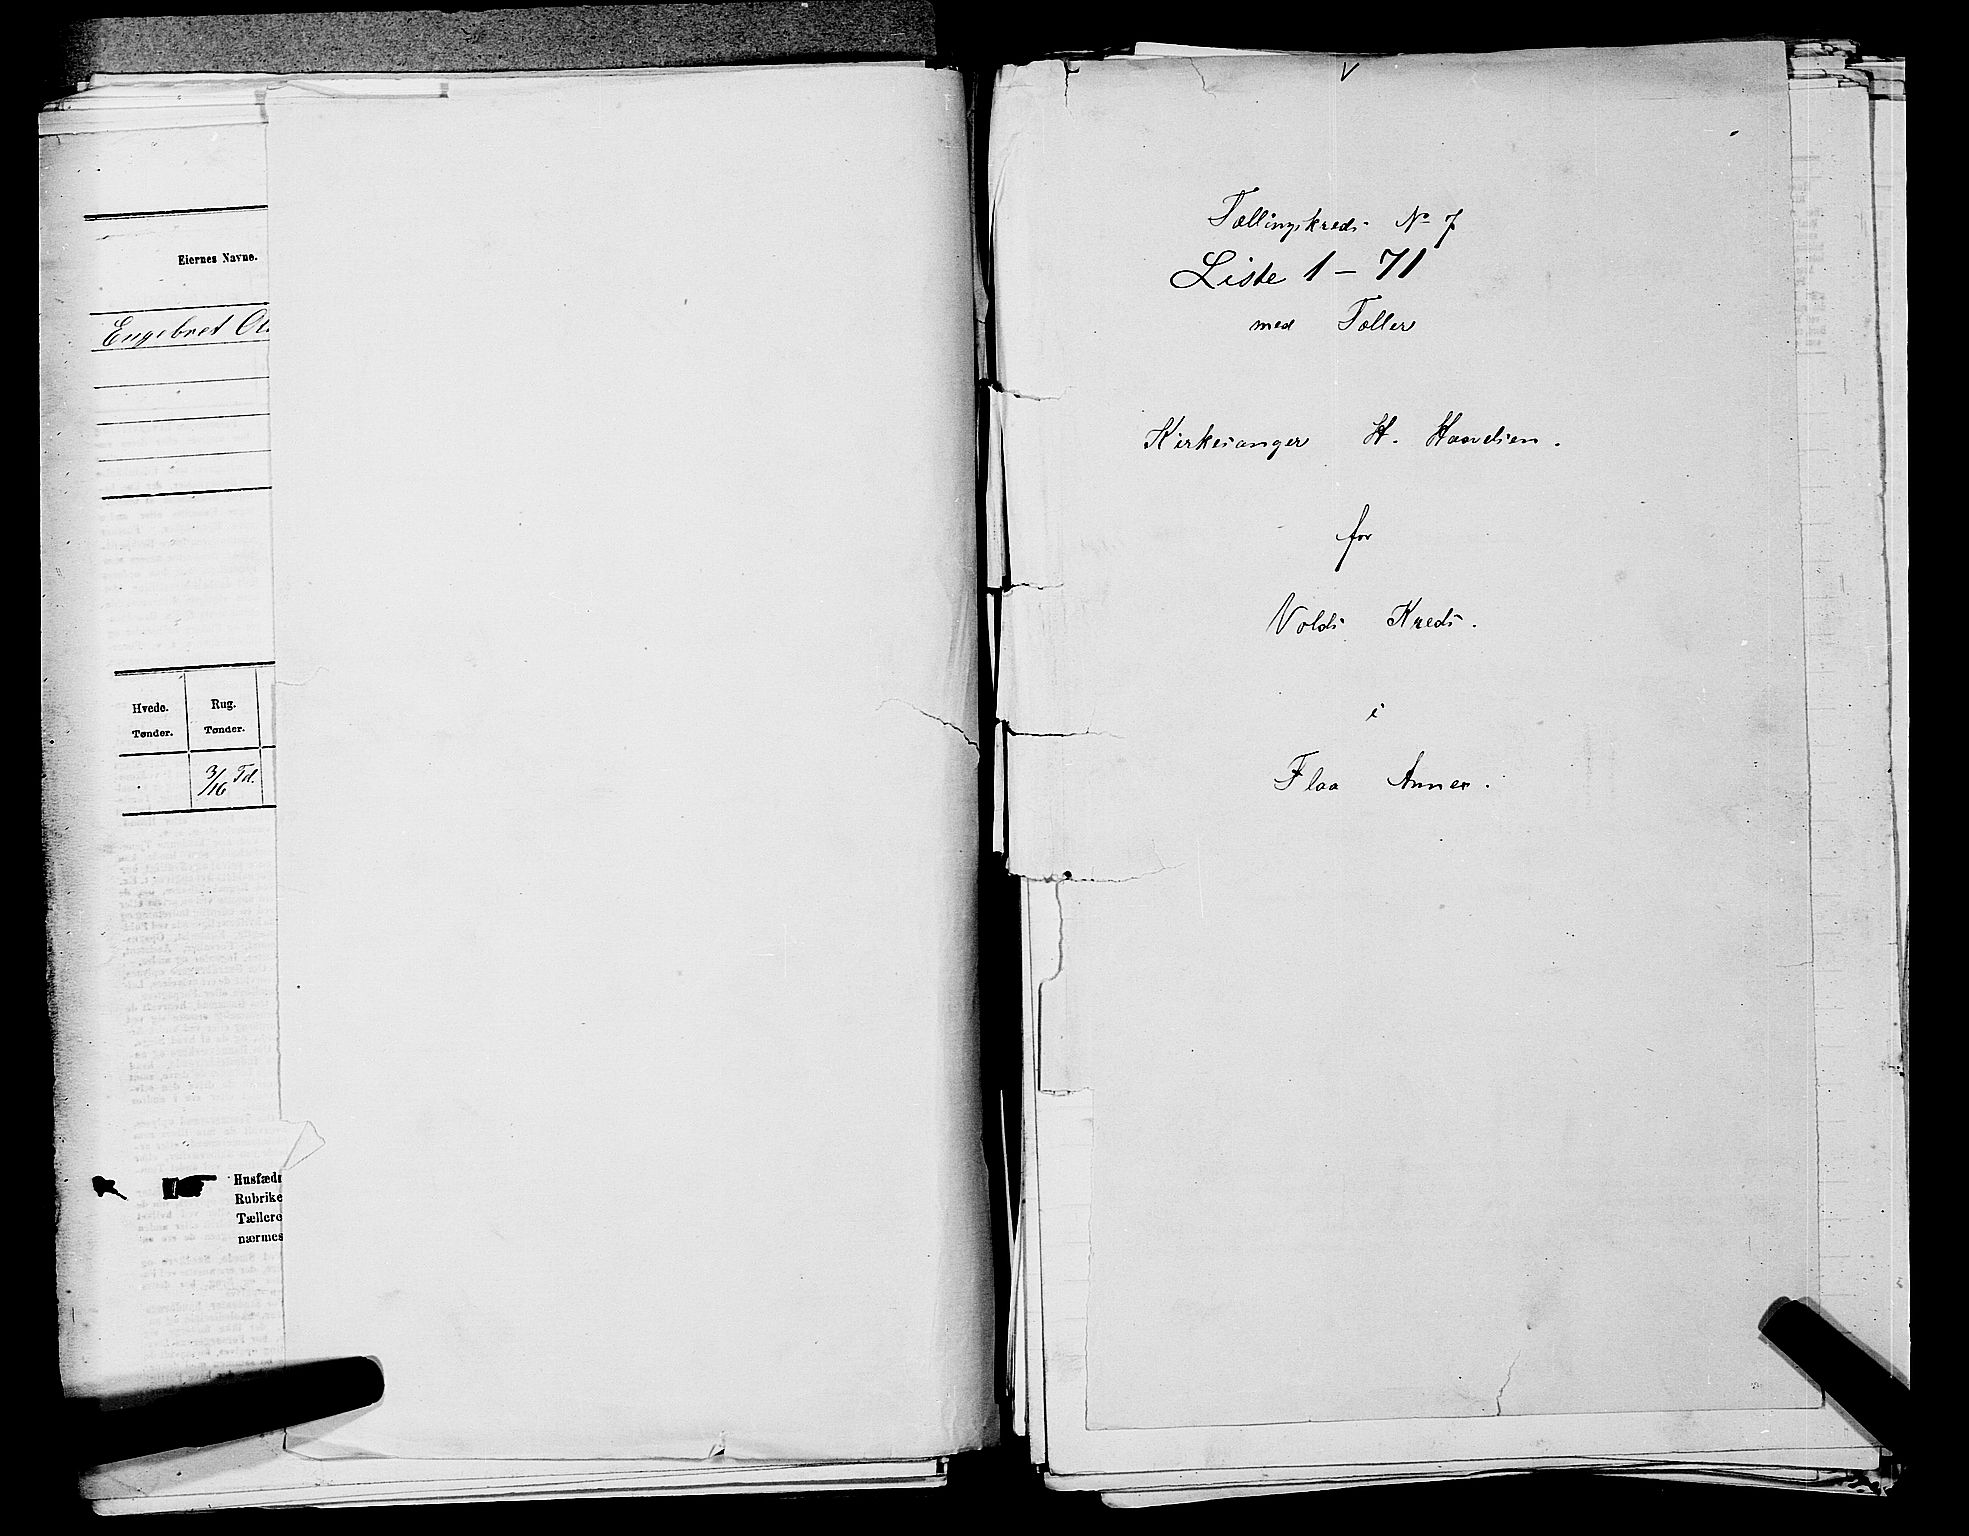 Eiernes Navne.
Engebret Ol
Hvede.
Tønder.
Rug.
Tønder.
3/16 Td.
Husfædr
Rubrike
Tællere
nærmes
Tællingskreds No 7
Liste 1 – 71
med Tæller
Kirkesanger H. Haavelsen.
for
Volds Kreds.
i
Flaa Annex.